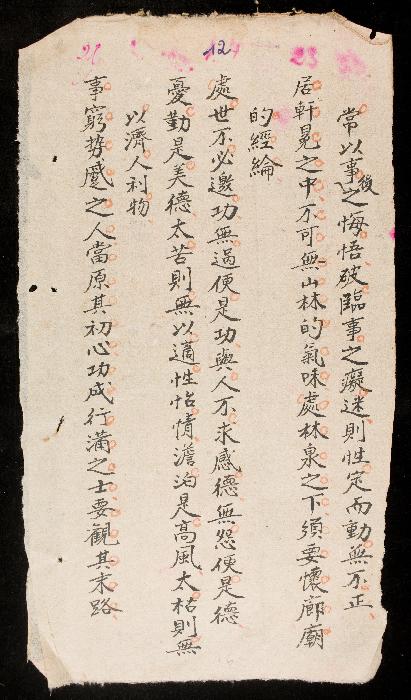 23
12
常以事後之悔悟破臨事之癡迷則性定而動無不正
居軒冕之中不可無山林的氣味處林泉之下須要懷廊廟
的經綸
處世不必邀功無過便是功與人不求感德無怨便是德
憂勤是美德太苦則無以適性怡情澹泊是高風太枯則無
以濟人利物
事窮勢蹙之人當原其初心功成行滿之士要觀其末路